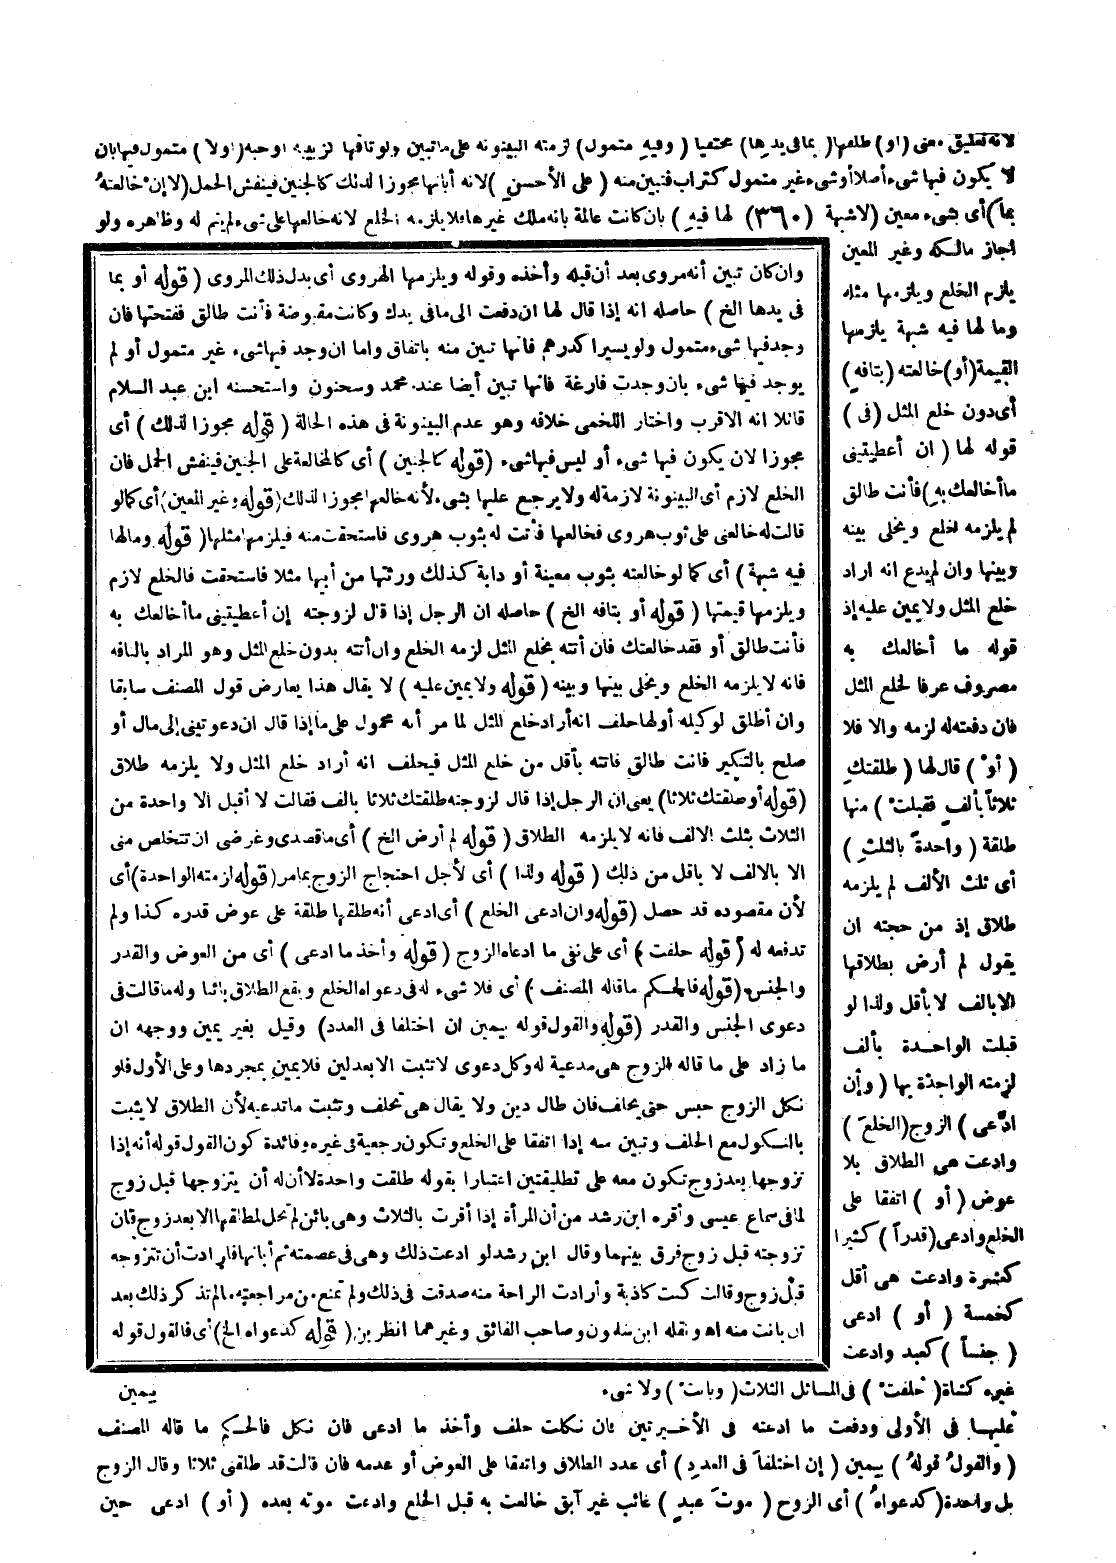 لانه تعليق معنى (أو) طلقها (بما فى يدها) مختفيا (وفيه متمول) لزمته البينونة على ما تبين ولو تافها لزبيبة أوحبة (أولا) متمول فيها بان
لا يكون فيها شىء أصلا أو شىء غير متمول كتراب فتبين منه (على الأحسن) لانه أبانها مجوزا لذلك كالجنين فينفش الحمل (لا إن خالعته
بما) أى بشىء معين (لا شبهة (٣٦٠) لها فيه) بان كانت عالمة بانه ملك غيرها فلا يلزمه الخلع لانه خالعها على شىء لم يتم له وظاهره ولو
اجاز مالكه وغير المعين
يلزم الخلع ويلزمها مثله
وما لها فيه شبهة يلزمها
القيمة (أو) خالعته (بتافه)
أى دون خلع المثل (فى)
قوله لها (ان أعطيتينى
ما أخالعك به) فأنت طالق
لم يلزمه الخلع ويخلى بينه
وبينها وان لم يدع انه اراد
خلع المثل ولا يمين عليه إذ
قوله ما أخالعك به
مصروف عرفا لخلع المثل
فان دفعته له لزمه والا فلا
(أو) قال لها (طلقتك
ثلاثا بألف فقبلت) منها
طلقة (واحدة بالثلث)
أى ثلث الألف لم يلزمه
طلاق إذ من حجته ان
يقول لم أرض بطلاقها
الا بالف لا بأقل ولذا لو
قبلت الواحدة بألف
لزمته الواحدة بها (وإن
ادّعى) الزوج (الخلع)
وادعت هى الطلاق بلا
عوض (أو) اتفقا على
الخلع وادعى (قدراً) كثيرا
كعشرة وادعت هى أقل
كخمسة (أو) ادعى
(جنساً) كعبد وادعت
غيره كشاة (حلفت) فى المسائل الثلاث (وبانت) ولا شىء
عليها فى الأولى ودفعت ما ادعته فى الأخيرتين فان نكلت حلف وأخذ ما ادعى فان نكل فالحكم ما قاله المصنف
(والقول قوله) بيمين (إن اختلفا فى العدد) أى عدد الطلاق واتفقا على العوض أو عدمه فان قالت قد طلقنى ثلاثا وقال الزوج
بل واحدة (كدعواه) أى الزوج (موت عبد) غائب غير آبق خالعت به قبل الخلع وادعت موته بعده (أو) ادعى حين
وان كان تبين أنه مروى بعد أن قبله وأخذه وقوله ويلزمها الهروى أى بدل ذلك المروى (قوله أو بما
فى يدها الخ) حاصله انه إذا قال لها ان دفعت الى ما فى يدك وكانت مقبوضة فأنت طالق ففتحتها فان
وجد فيها شىء متمول ولو يسيرا كدرهم فانها تبين منه باتفاق واما ان وجد فيها شىء غير متمول أو لم
يوجد فيها شىء بان وجدت فارغة فانها تبين أيضا عند محمد وسحنون واستحسنه ابن عبد السلام
قائلا انه الاقرب واختار اللخمى خلافه وهو عدم البينونة فى هذه الحالة (قوله مجوزا لذلك) أى
مجوزا لان يكون فيها شىء أو ليس فيها شىء (قوله كالجنين) أى كالمخالعة على الجنين فينفش الحمل فان
الخلع لازم أى البينونة لازمة له ولا يرجع عليها بشىء لأنه خالعها مجوزا لذلك (قوله وغير المعين) أى كما لو
قالت له خالعنى على ثوب هروى فخالعها فأتت له بثوب هروى فاستحقت منه فيلزمها مثلها (قوله وما لها
فيه شبهة) أى كما لو خالعته بثوب معينة أو دابة كذلك ورثتها من أبيها مثلا فاستحقت فالخلع لازم
ويلزمها قيمتها (قوله أو بتافه الخ) حاصله ان الرجل إذا قال لزوجته إن أعطيتينى ما أخالعك به
فأنت طالق أو فقد خالعتك فان أتته بخلع المثل لزمه الخلع وان أتته بدون خلع المثل وهو المراد بالتافه
فانه لا يلزمه الخلع ويخلى بينها وبينه (قوله ولا يمين عليه) لا يقال هذا يعارض قول المصنف سابقا
وان أطلق لوكيله أو لها حلف انه أراد خلع المثل لما مر أنه محمول على ما إذا قال ان دعوتينى إلى مال أو
صلح بالتنكير فانت طالق فاتته بأقل من خلع المثل فيحلف انه أراد خلع المثل ولا يلزمه طلاق
(قوله أو طلقتك ثلاثا) يعنى ان الرجل إذا قال لزوجته طلقتك ثلاثا بالف فقالت لا أقبل الا واحدة من
الثلاث بثلث الالف فانه لا يلزمه الطلاق (قوله لم أرض الخ) أى ما قصدى وغرضى ان تتخلص منى
الا بالالف لا باقل من ذلك (قوله ولذا) أى لأجل احتجاج الزوج بما مر (قوله لزمته الواحدة) أى
لأن مقصوده قد حصل (قوله وان ادعى الخلع) أى ادعى أنه طلقها طلقة على عوض قدره كذا ولم
تدفعه له (قوله حلفت) أى على نفى ما ادعاه الزوج (قوله وأخذ ما ادعى) أى من العوض والقدر
والجنس (قوله فالحكم ما قاله المصنف) أى فلا شىء له فى دعواه الخلع ويقع الطلاق بائنا وله ما قالت فى
دعوى الجنس والقدر (قوله والقول قوله بيمين ان اختلفا فى العدد) وقيل بغير يمين ووجهه ان
ما زاد على ما قاله الزوج هى مدعية له وكل دعوى لا تثبت الا بعدلين فلا يمين بمجردها وعلى الأول فلو
نكل الزوج حبس حتى يحلف فان طال دين ولا يقال هى تحلف وتثبت ما تدعيه لأن الطلاق لا يثبت
بالنكول مع الحلف وتبين منه إذا اتفقا على الخلع وتكون رجعية فى غيره وفائدة كون القول قوله أنه إذا
تزوجها بعد زوج تكون معه على تطليقتين اعتبارا بقوله طلقت واحدة لا أن له أن يتزوجها قبل زوج
لما فى سماع عيسى وأقره ابن رشد من أن المرأة إذا أقرت بالثلاث وهى بائن لم تحل لمطلقها الا بعد زوج فان
تزوجته قبل زوج فرق بينهما وقال ابن رشد لو ادعت ذلك وهى فى عصمته ثم أبانها فارادت أن تتزوجه
قبل زوج وقالت كنت كاذبة وأرادت الراحة منه صدقت فى ذلك ولم تمنع من مراجعته ما لم تذكر ذلك بعد
ان بانت منه اه ونقله ابن سلمون وصاحب الفائق وغيرهما انظر بن (قوله كدعواه الخ) أى فالقول قوله
بيمين